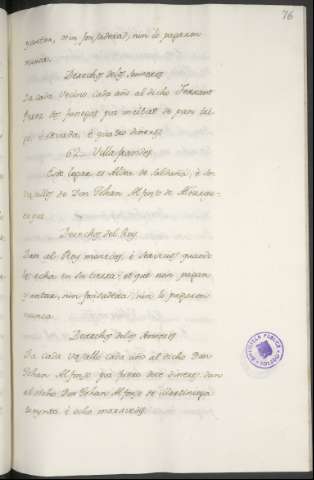 76
yantar, nin fonsadera, nin lo pagaron
nunca.
Derechos delos Sennores
Da cada Vecino cada año al dicho Ferrant
dos fanegas por meitat de pan tri-
go è cevada, è quatro dineros.
62 Villafrandes
Este logar es Aldea de Saldaña, è son
vasallos de Don Johan Alfonso de
Derechos del Rey
Dan al Rey monedas, è servicios quando
los echa en su tierra, et que non pagan
yantar, nin fonsadera, nin lo pagaron
nunca
Derechos delos Sennores
Da cada vasallo cada año al dicho Don
Johan Alfonso por fuero doce dineros, dan
al dicho Don Johan Alfonso de Martiniega
è ocho maravedis.